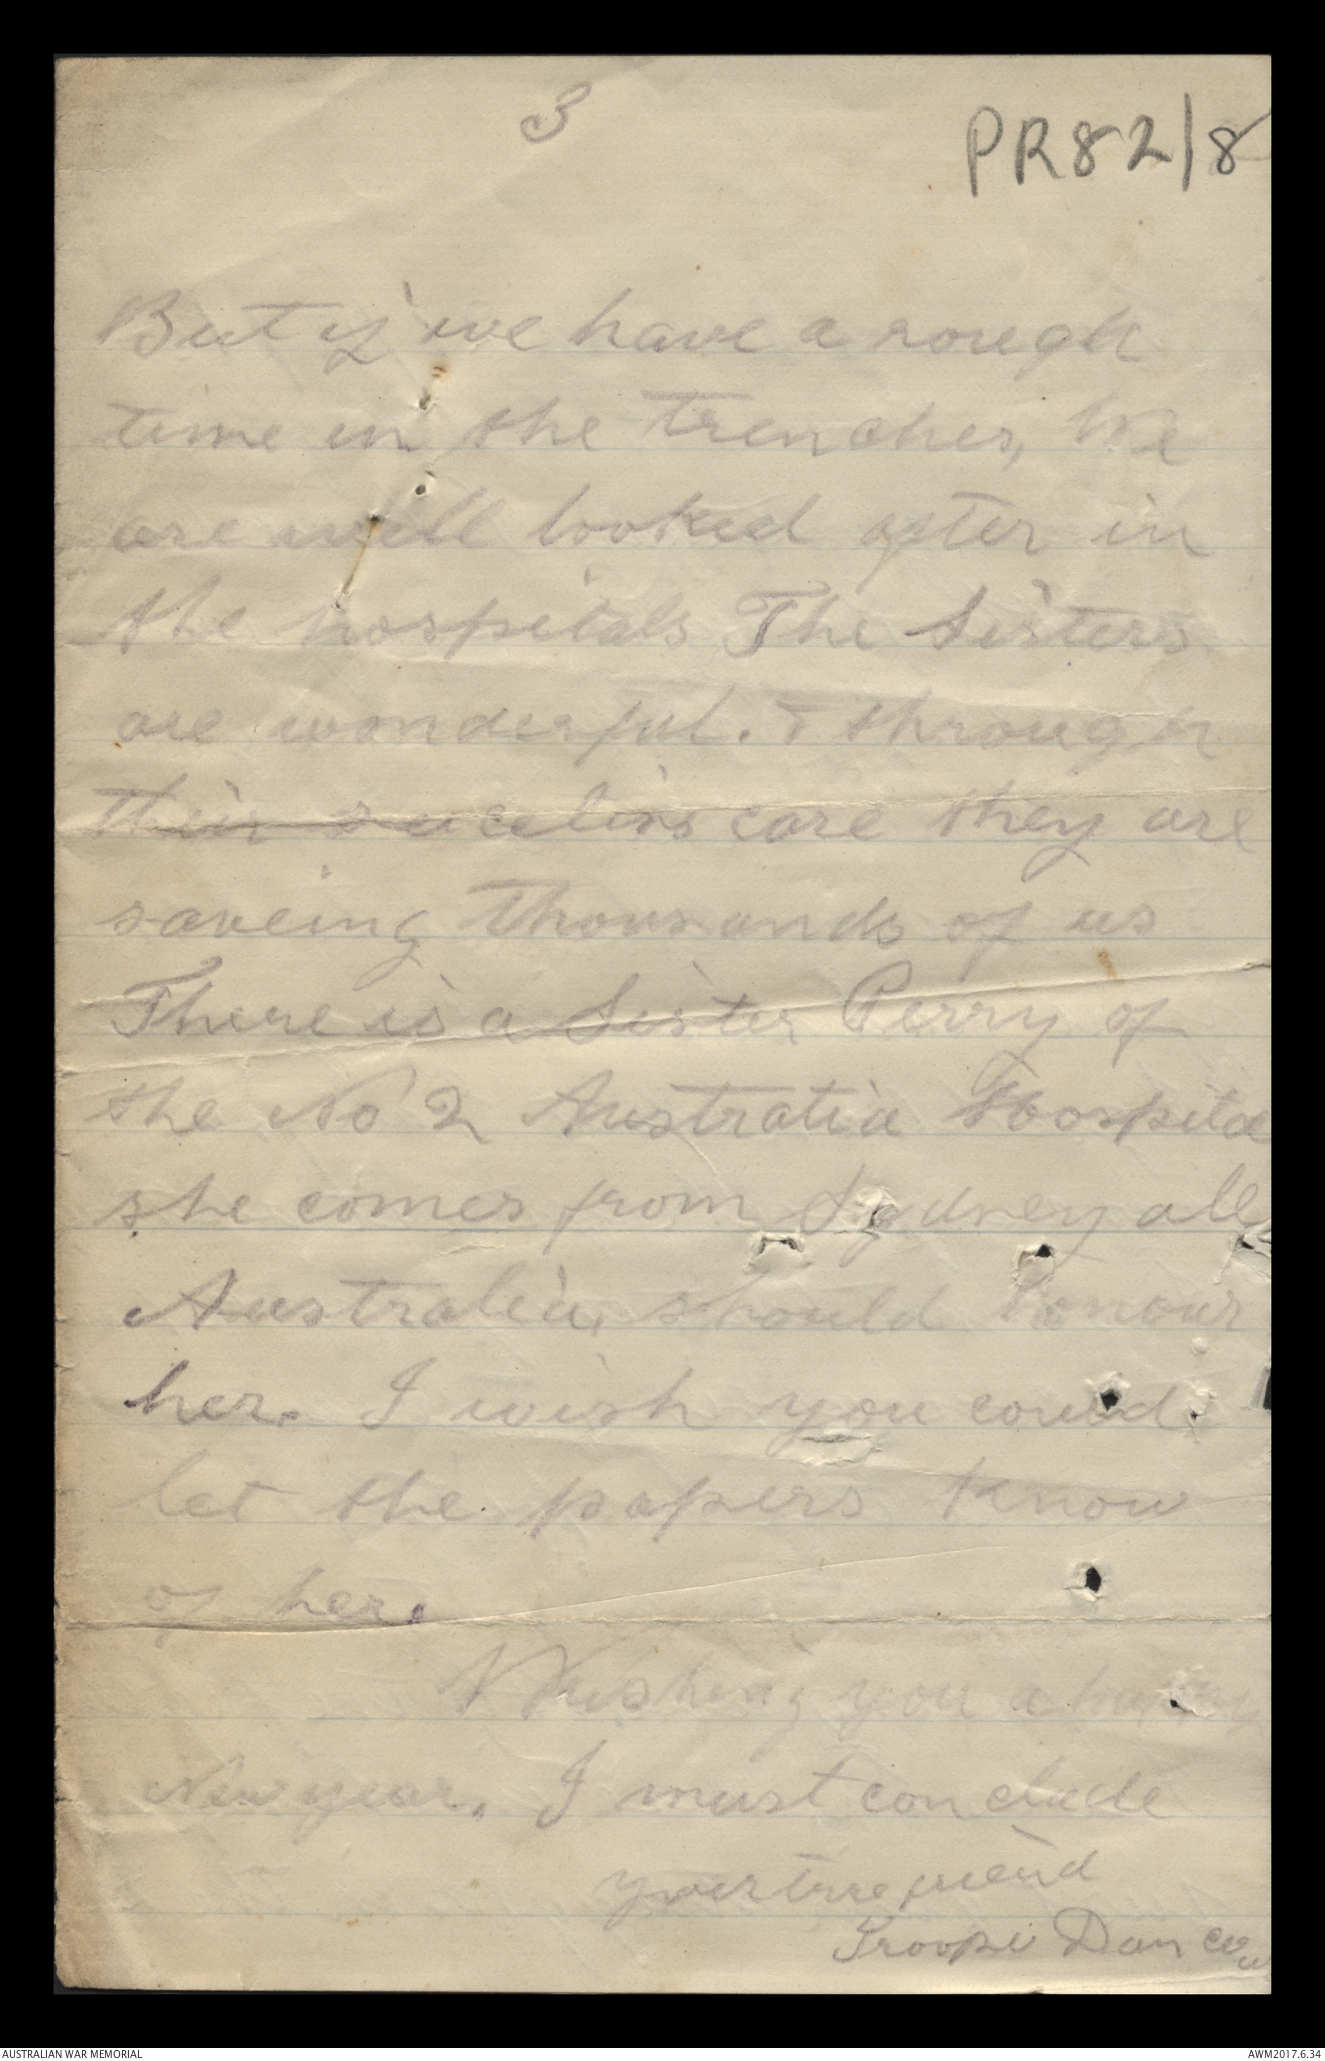 3
PR82/8
But if we have a rough
time in the trenches, We
are well looked after in
the hospitals The Sisters
are wonderful. & through
their care they are
saveing thousands of us
There is a Sister Perry of
the No 2 Australia Hospital
she comes from Sydney all
Australia, should honour
her. I wish you could
let the papers know
of her.
Wishing you a happy
New year. I must conclude
your true friend
Dan
AUSTRALIAN WAR MEMORIAL
AWM2017.6.34